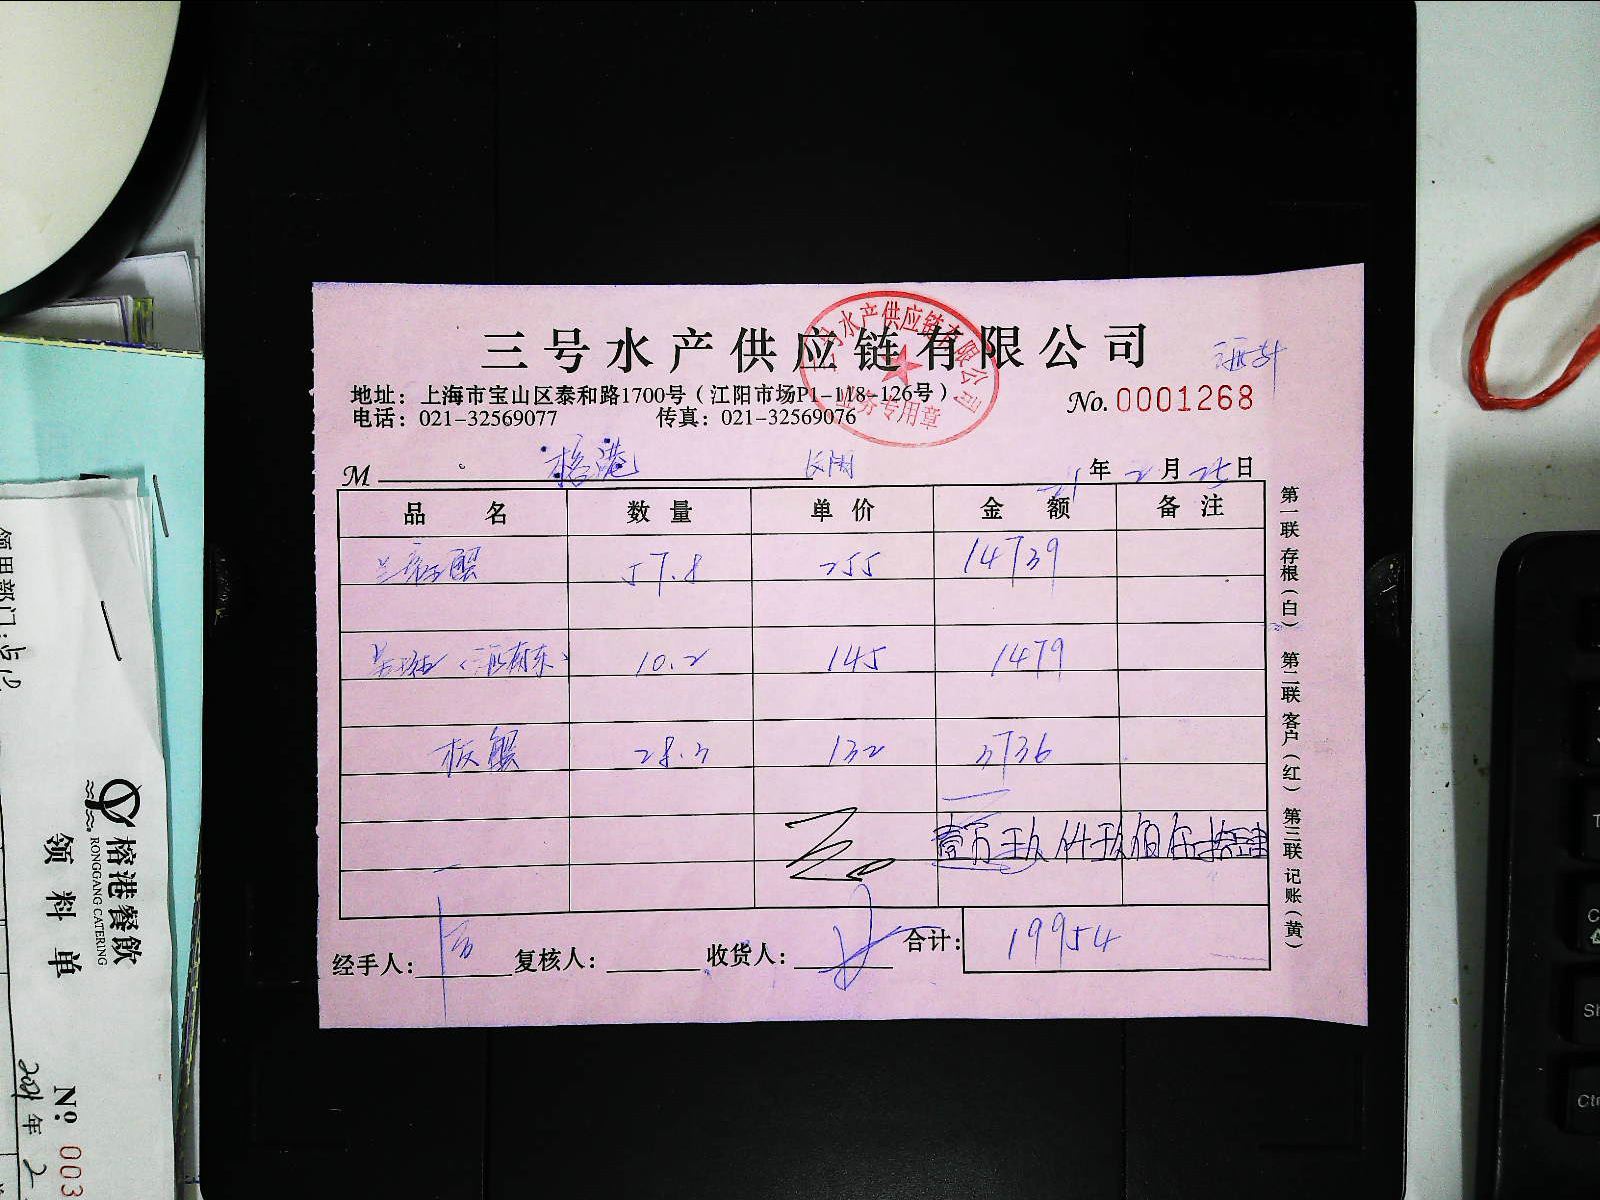 三号水产供应链有限公司
三号水产供应链有限公司
业务专用章
地址：上海市宝山区泰和路1700号（江阳市场P1-118-126号）
No. 0001268
电话：021-32569077 传真：021-32569076
M 榕港
21年2月25日
品名 数量 单价 金额 备注
57.8 255 14739
10.2 145 1479
板蟹 28.3 132 3736
壹万玖仟玖佰伍拾肆
经手人： 复核人： 收货人： 合计： 19954
第一联 存根（白）
第二联 客户（红）
第三联 记账（黄）
领用部门：
榕港餐飲
RONGGANG CATERING
领料单
No 003
2021年2
Ctrl